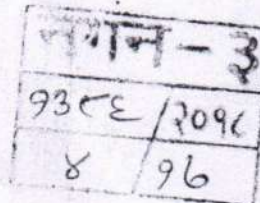 नगन - ३
१३८६ / २०१८
४ / १७